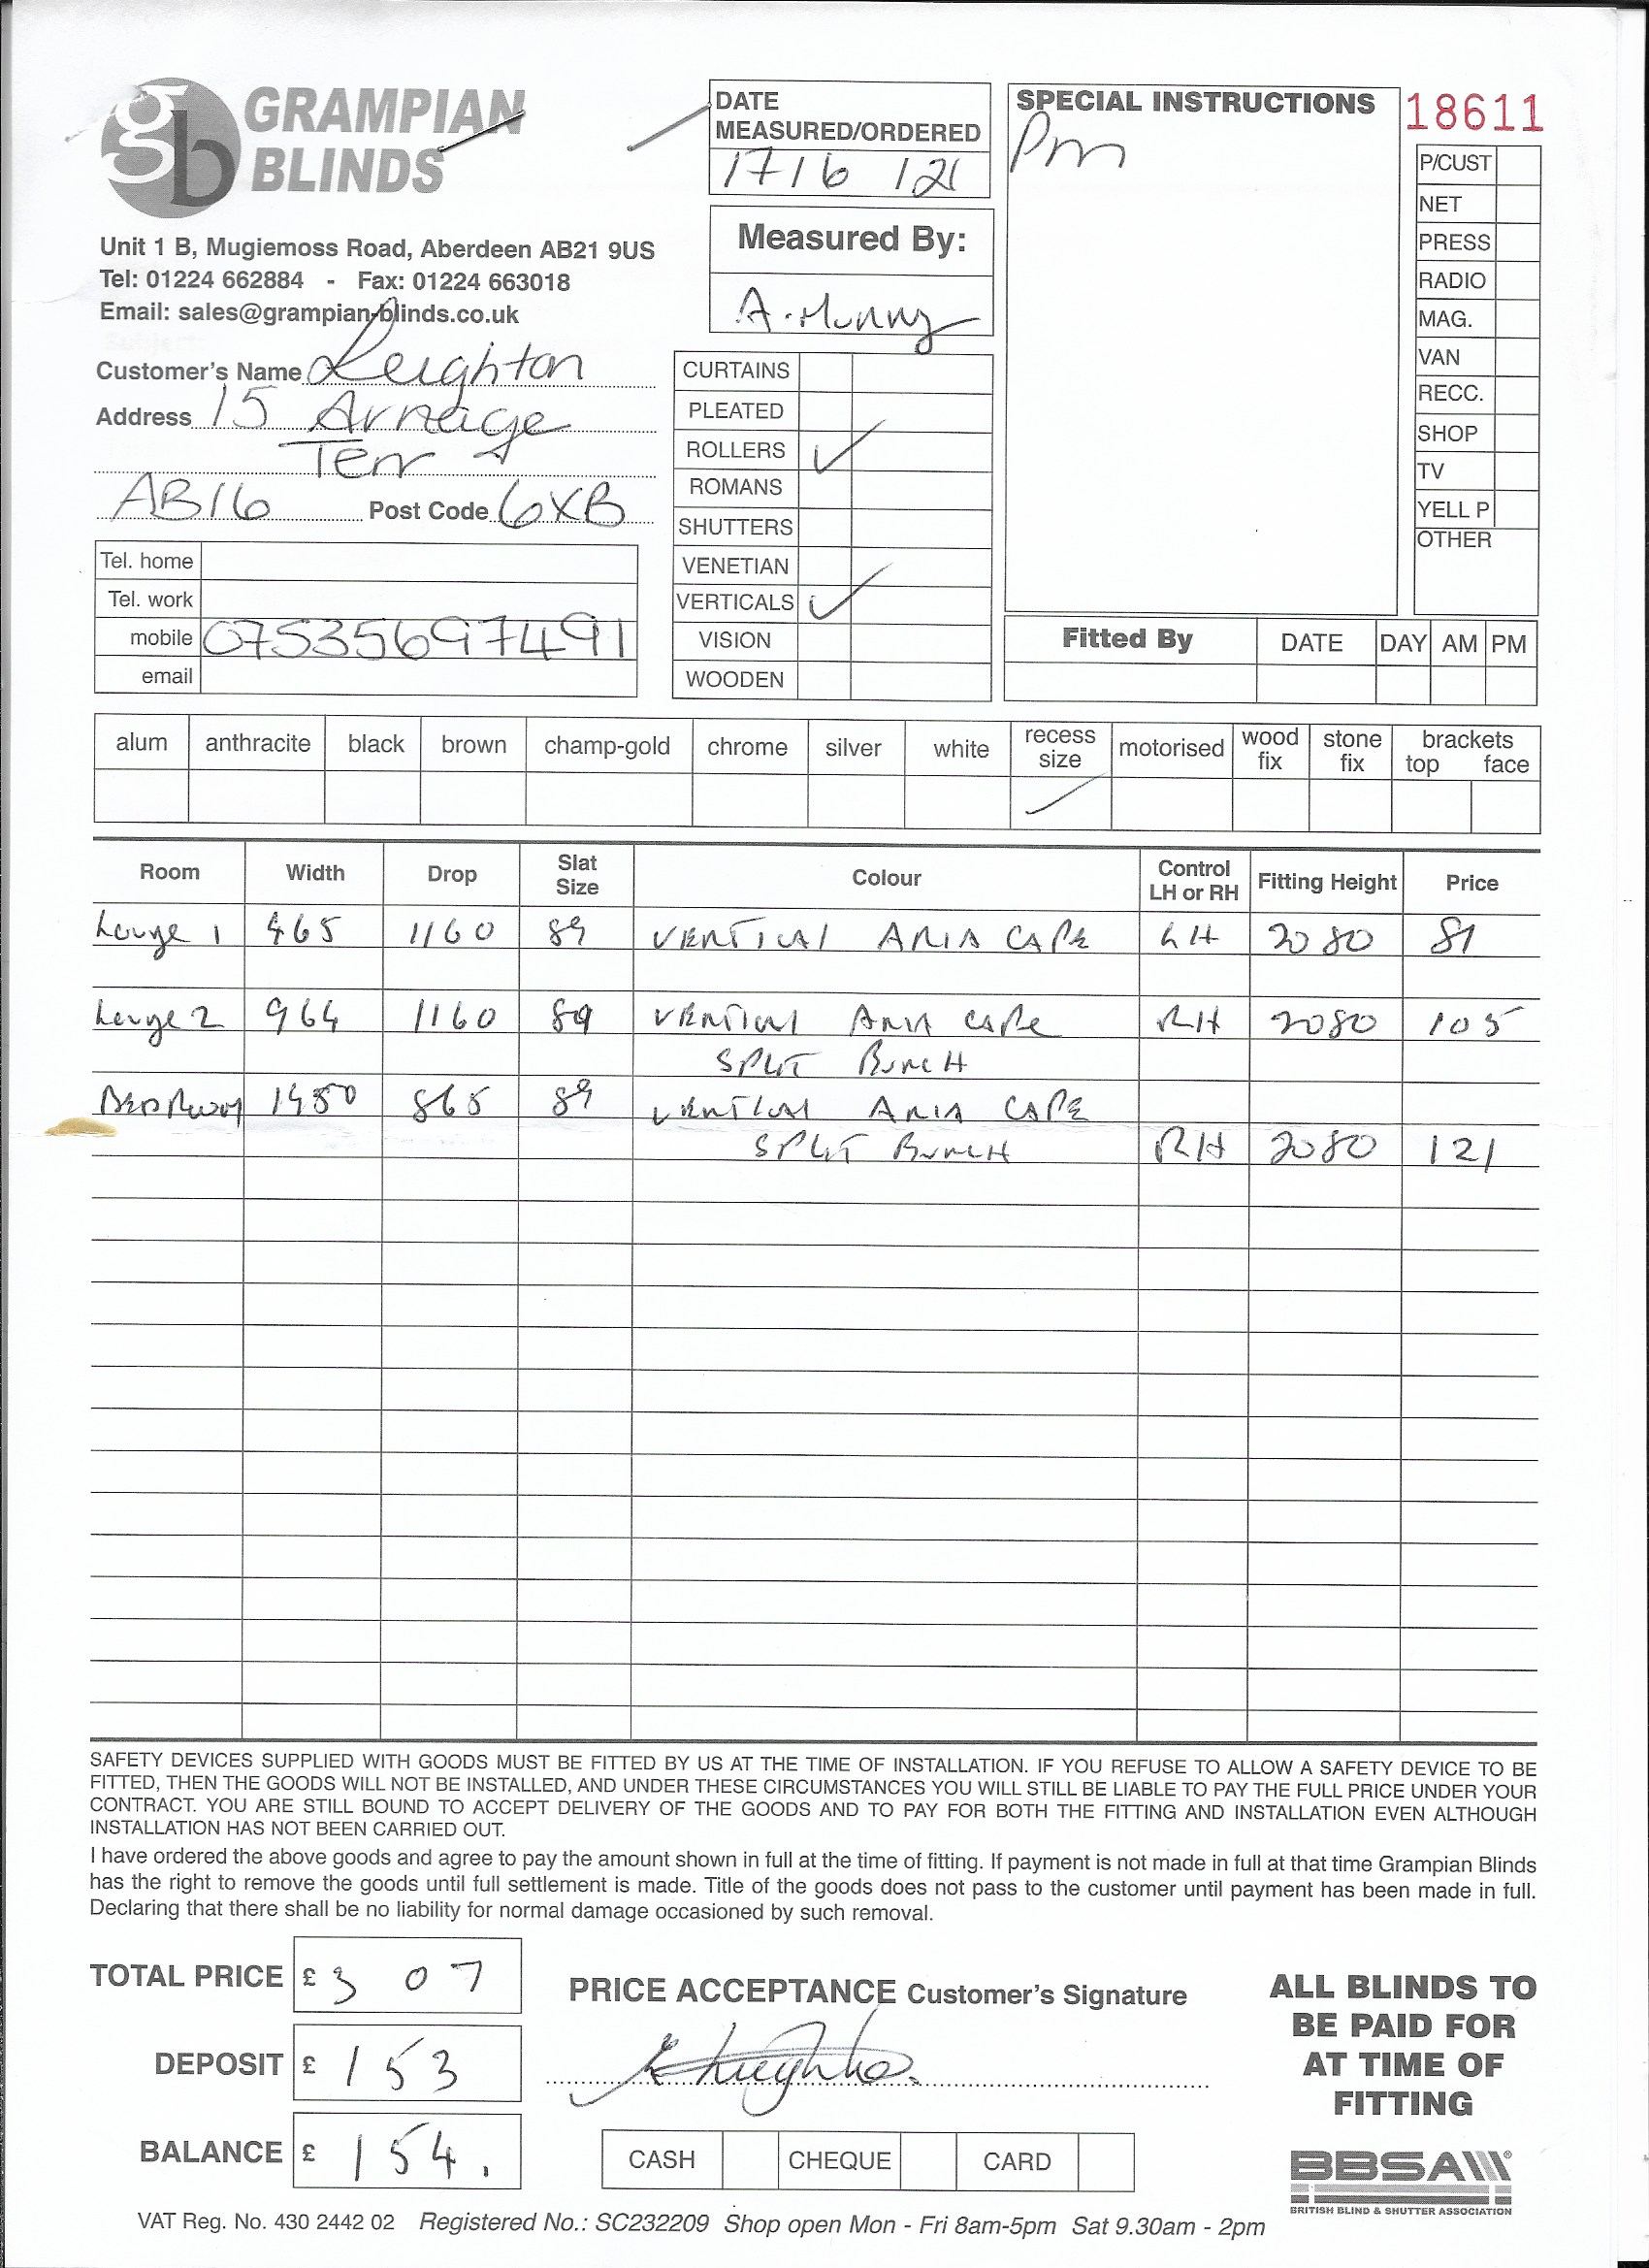 gb GRAMPIAN
BLINDS
Unit 1 B, Mugiemoss Road, Aberdeen AB21 9US
Tel: 01224 662884 - Fax: 01224 663018
Email: sales@grampian-blinds.co.uk
Customer's Name Leighton
Address 15 Arnage
Terr
AB16 Post Code 6XB
Tel. home
Tel. work
mobile 07535697491
email
DATE
MEASURED/ORDERED
17/6/21
Measured By:
A. Murray
CURTAINS
PLEATED
ROLLERS ✓
ROMANS
SHUTTERS
VENETIAN
VERTICALS ✓
VISION
WOODEN
SPECIAL INSTRUCTIONS
Pm
18611
P/CUST
NET
PRESS
RADIO
MAG.
VAN
RECC.
SHOP
TV
YELL P
OTHER
Fitted By DATE DAY AM PM
alum anthracite black brown champ-gold chrome silver white recess size motorised wood fix stone fix brackets top face
✓
Room Width Drop Slat Size Colour Control LH or RH Fitting Height Price
Lounge 1 465 1160 89 VERTICAL ARIA CAPE LH 2080 81
Lounge 2 964 1160 89 VERTICAL ARIA CAPE RH 2080 105
SPLIT BUNCH
BEDROOM 1450 865 89 VERTICAL ARIA CAPE
SPLIT BUNCH RH 2080 121
SAFETY DEVICES SUPPLIED WITH GOODS MUST BE FITTED BY US AT THE TIME OF INSTALLATION. IF YOU REFUSE TO ALLOW A SAFETY DEVICE TO BE
FITTED, THEN THE GOODS WILL NOT BE INSTALLED, AND UNDER THESE CIRCUMSTANCES YOU WILL STILL BE LIABLE TO PAY THE FULL PRICE UNDER YOUR
CONTRACT. YOU ARE STILL BOUND TO ACCEPT DELIVERY OF THE GOODS AND TO PAY FOR BOTH THE FITTING AND INSTALLATION EVEN ALTHOUGH
INSTALLATION HAS NOT BEEN CARRIED OUT.
I have ordered the above goods and agree to pay the amount shown in full at the time of fitting. If payment is not made in full at that time Grampian Blinds
has the right to remove the goods until full settlement is made. Title of the goods does not pass to the customer until payment has been made in full.
Declaring that there shall be no liability for normal damage occasioned by such removal.
TOTAL PRICE £ 307
DEPOSIT £ 153
BALANCE £ 154.
PRICE ACCEPTANCE Customer's Signature
CASH CHEQUE CARD
ALL BLINDS TO
BE PAID FOR
AT TIME OF
FITTING
BBSA
BRITISH BLIND & SHUTTER ASSOCIATION
VAT Reg. No. 430 2442 02 Registered No.: SC232209 Shop open Mon - Fri 8am-5pm Sat 9.30am - 2pm